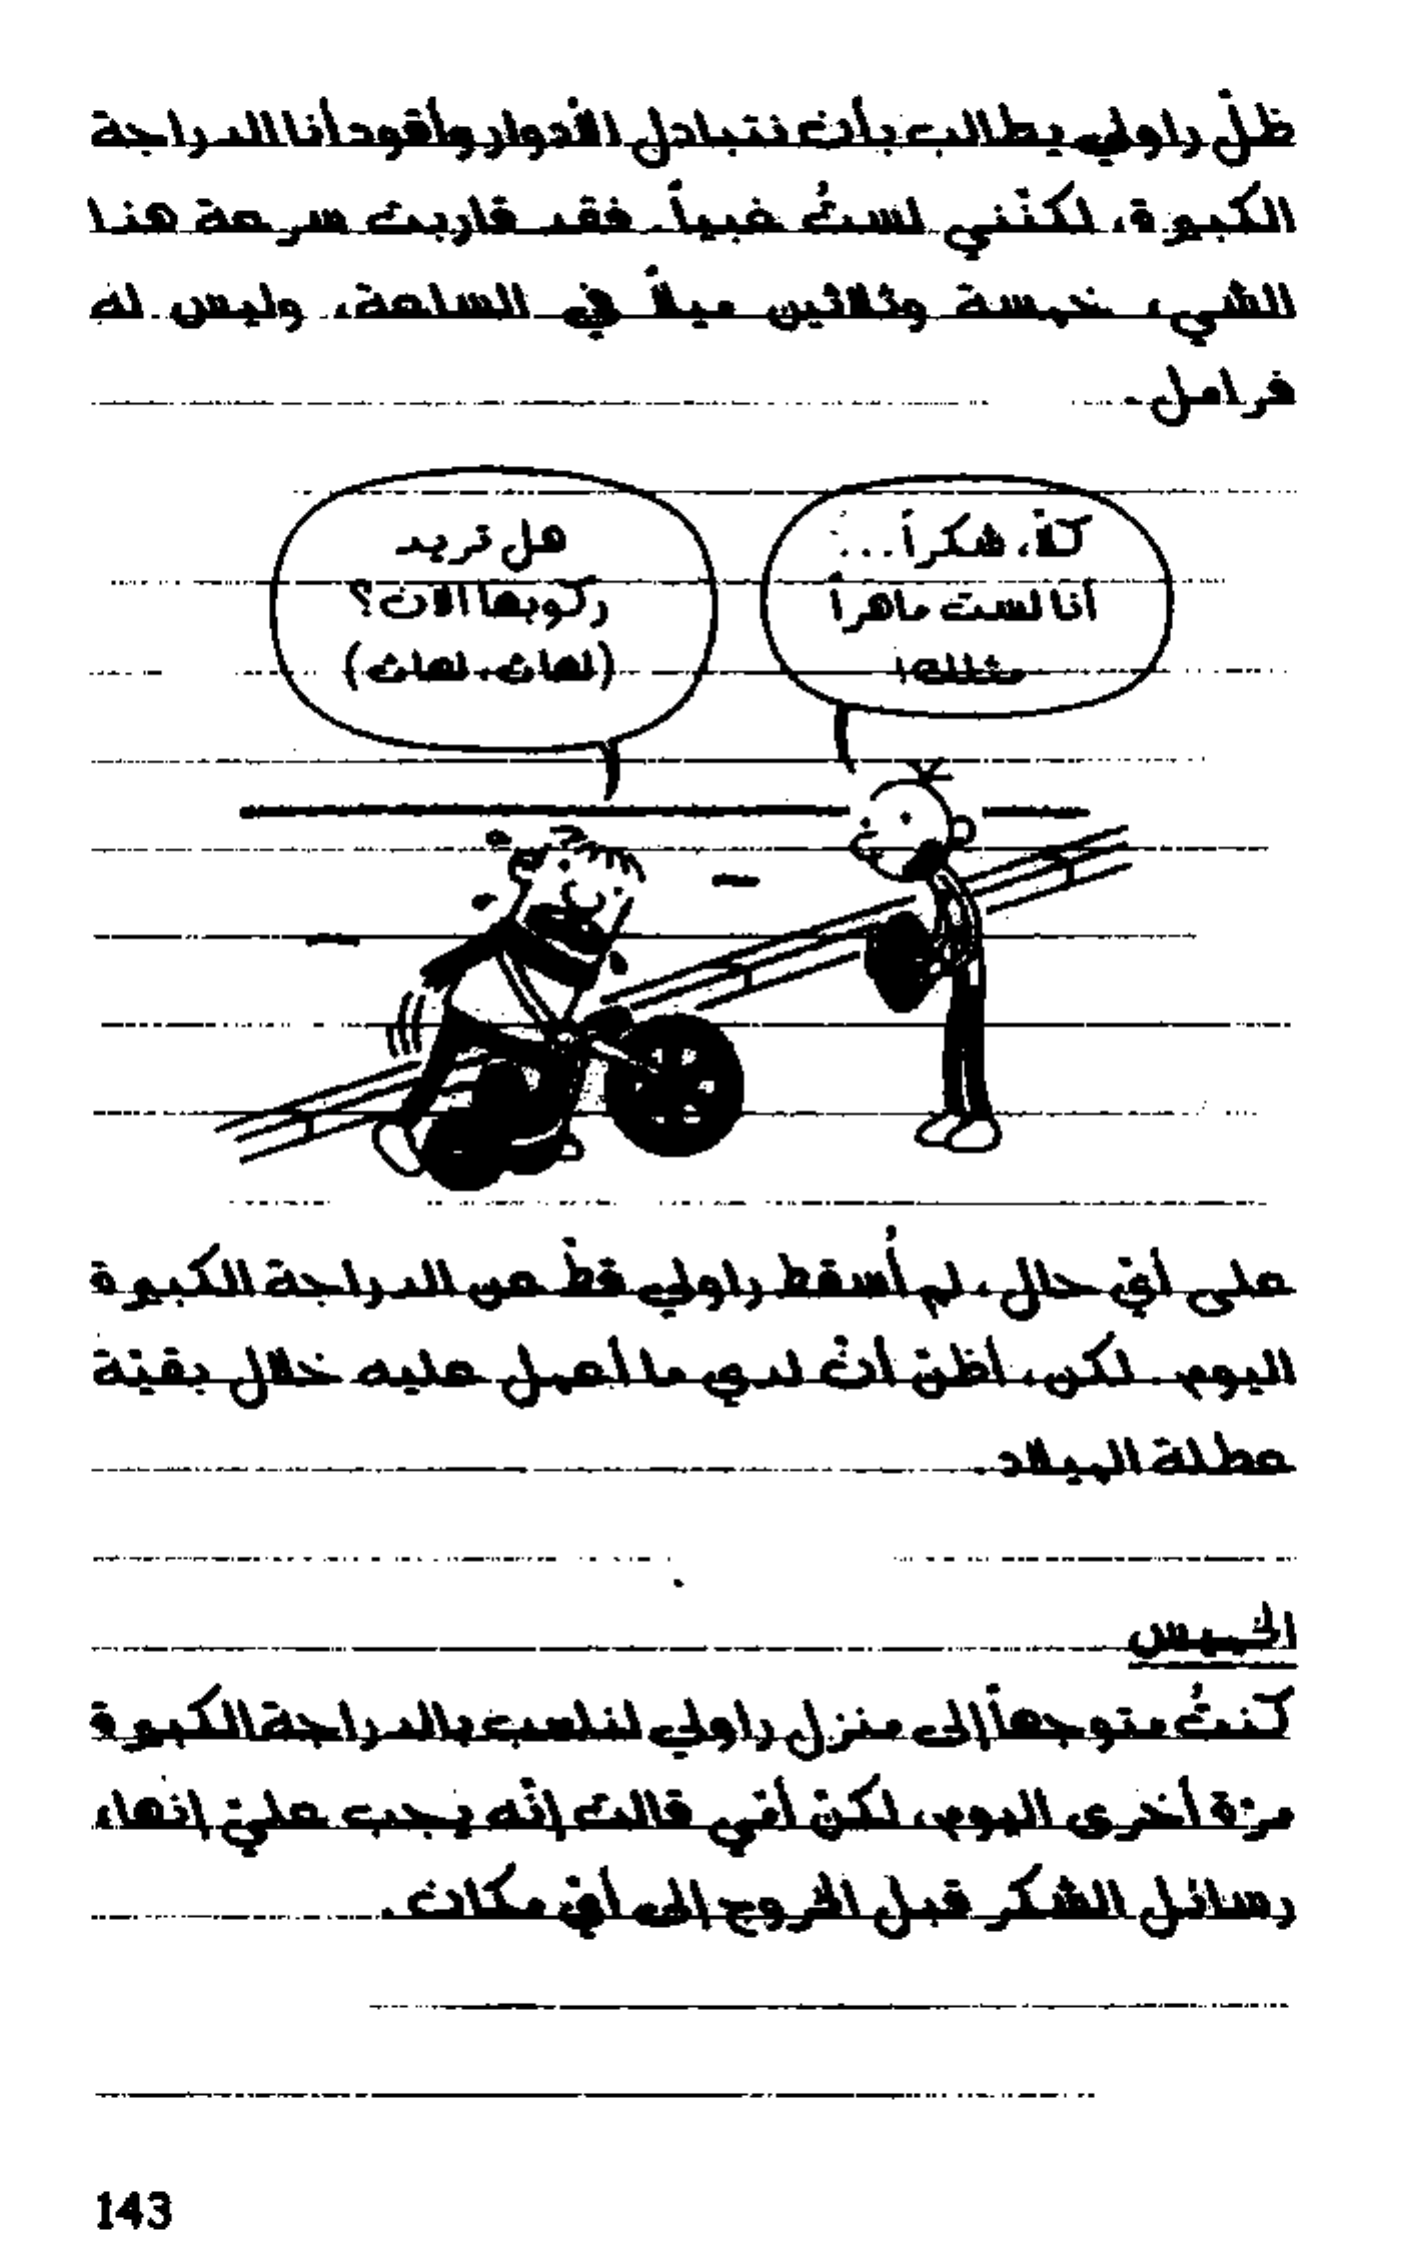 ظلّ راولي يطالب بأن نتبادل الأدوار وأقود أنا الدراجة
الكبيرة، لكنّني لستُ غبياً. فقد قاربت سرعة هذا
الشيء خمسة وثلاثين ميلاً في الساعة، وليس له
فرامل.
كلاّ، شكراً...
أنا لست ماهراً
مثلك!
هل تريد
ركوبها الآن؟
(لهاث، لهاث)
على أيّ حال، لم أُسقط راولي قطّ عن الدراجة الكبيرة
اليوم. لكن، أظنّ أنّ لدي ما أعمل عليه خلال بقيّة
عطلة الميلاد.
الخميس
كنتُ متوجهاً إلى منزل راولي لنلعب بالدراجة الكبيرة
مرّة أخرى اليوم، لكنّ أمّي قالت إنّه يجب عليّ إنهاء
رسائل الشكر قبل الخروج إلى أيّ مكان.
143